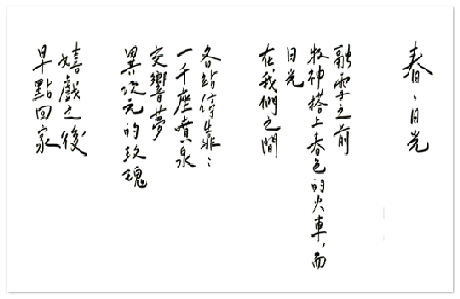 春、日光
融雪之前
牧神搭上春色的火車，而
日光
在我們之間
各站停靠：
一千座噴泉
交響夢
異次元的玫瑰
嬉戲之後
早點回家